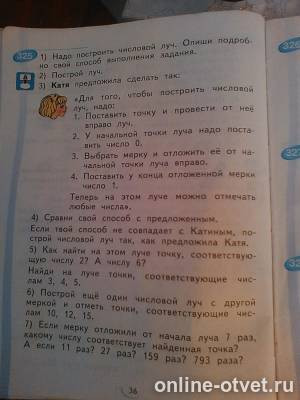 325
1) Надо построить числовой луч. Опиши подроб-
но свой способ выполнения задания.
2) Построй луч.
3) Катя предложила сделать так:
«Для того, чтобы построить числовой
луч, надо:
1. Поставить точку и провести от неё
вправо луч.
2. У начальной точки луча надо поста-
вить число 0.
3. Выбрать мерку и отложить её от на-
чальной точки луча вправо.
4. Поставить у конца отложенной мерки
число 1.
Теперь на этом луче можно отмечать
любые числа».
4) Сравни свой способ с предложенным.
Если твой способ не совпадает с Катиным, по-
строй числовой луч так, как предложила Катя.
5) Как найти на этом луче точку, соответствую-
щую числу 2? А числу 6?
Найди на луче точки, соответствующие чис-
лам 3, 4, 5.
6) Построй ещё один числовой луч с другой
меркой и отметь точки, соответствующие чис-
лам 10, 12, 15.
7) Если мерку отложили от начала луча 7 раз,
какому числу соответствует найденная точка?
А если 11 раз? 27 раз? 159 раз? 793 раза?
36
online-otvet.ru